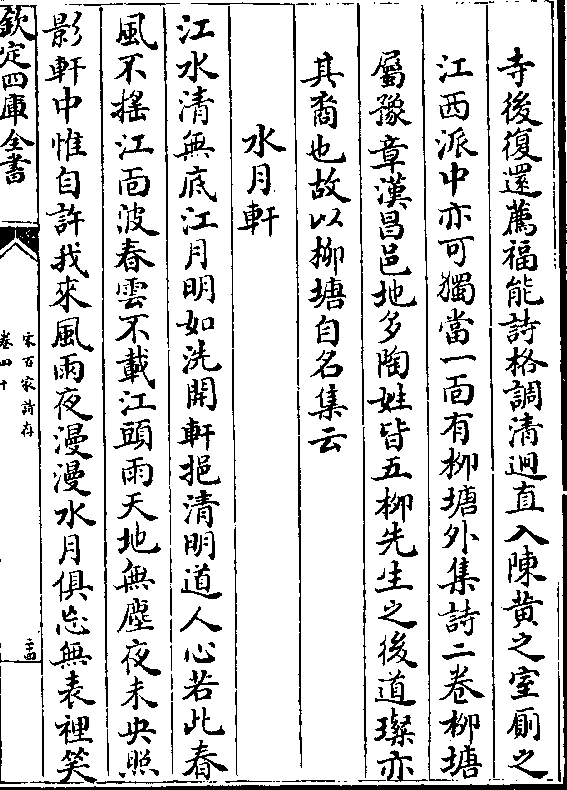 寺後復還薦福能詩格調清迥直入陳黄之室厠之
江西派中亦可獨當一面有柳塘外集詩二卷柳塘
屬豫章漢昌邑地多陶姓皆五柳先生之後道璨亦
其裔也故以柳塘自名集云
水月軒
江水清無底江月明如洗開軒挹清明道人心若此春
風不揺江面波春雲不載江頭雨天地無塵夜未央照
影軒中惟自許我來風雨夜漫漫水月俱忘無表裡笑
欽定四庫全書
宋百家詩存
卷四十